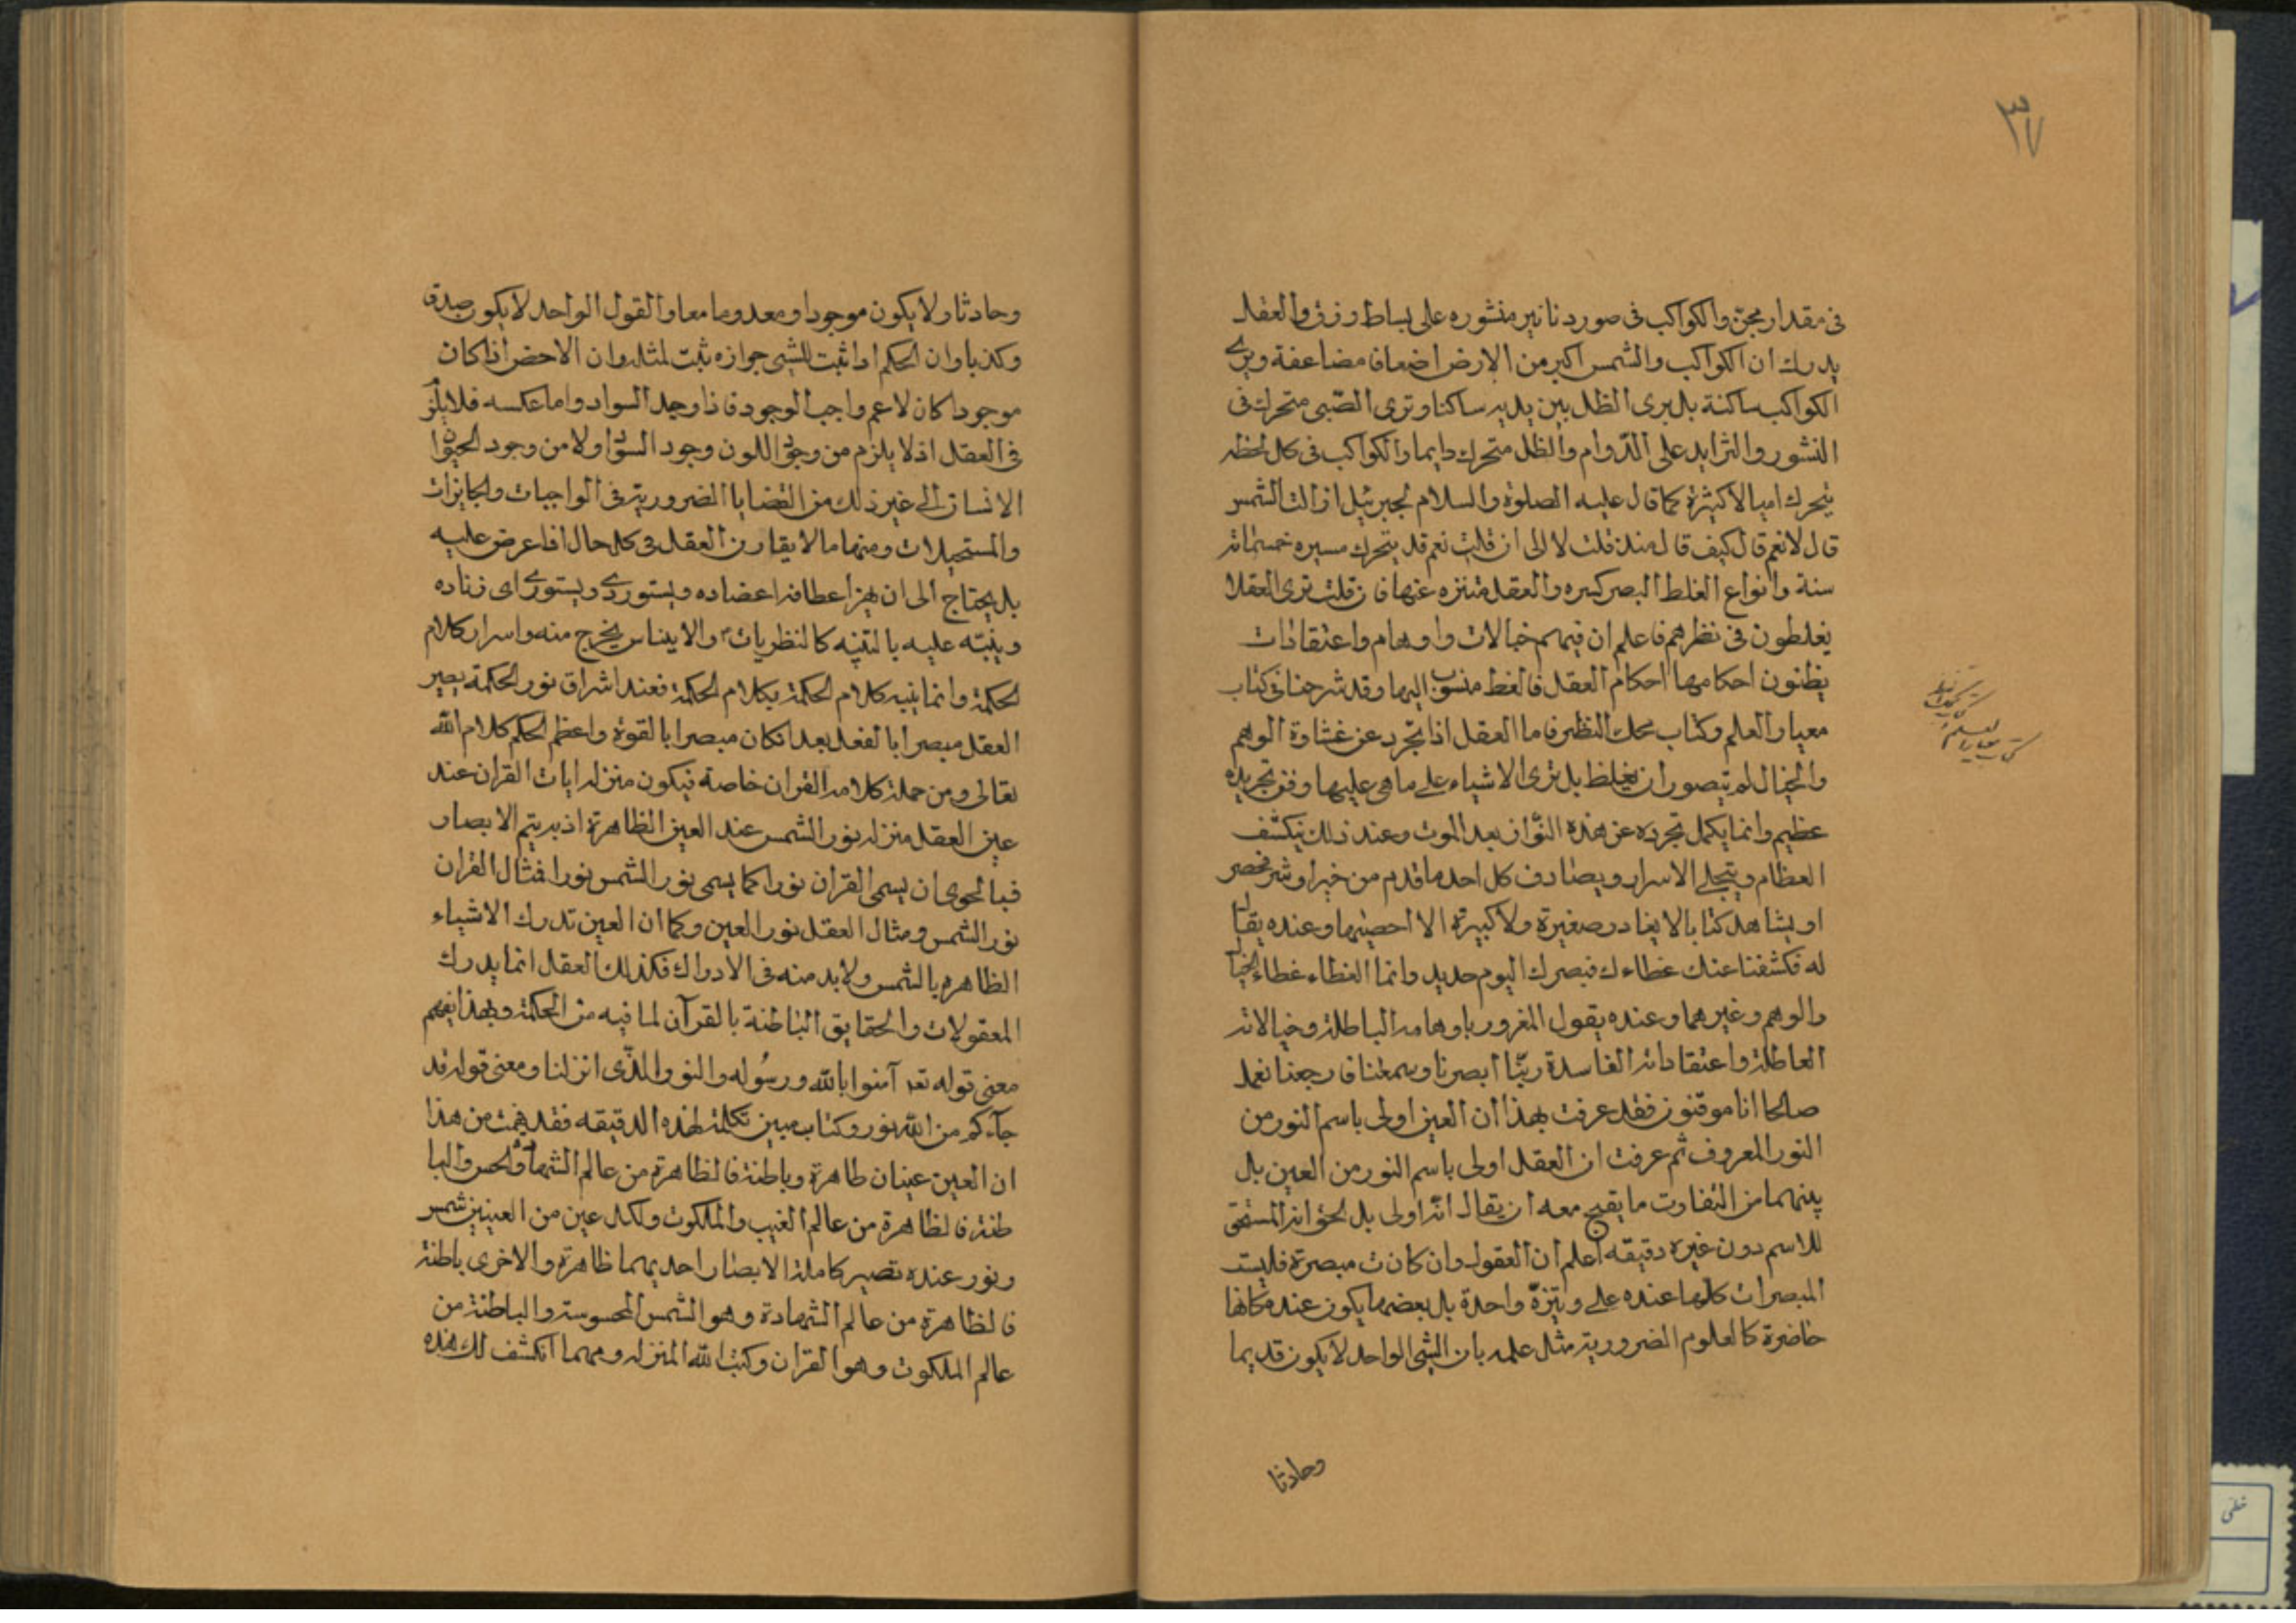 ٣٧
فى مقدار مجنّ والكواكب فى صور دنانير منثوره على بساط ازرق والعقل
يدرك ان الكواكب والشمس اكبر من الارض اضعافا مضاعفة ويرى
الكواكب ساكنة بل يرى الظل بين يديه ساكنا وترى الصّبى متحرك فى
النشور والتزايد على الدّوام والظل متحرك دايما والكواكب فى كل لحظه
يتحرك اميالا كثيرة كما قال عليه الصلوة والسلام لجبرئيل ازالت الشمس
قال لا نعم قال كيف قال منذ قلت لا الى ان قلت نعم قد يتحرك مسيره خمسمائه
سنة وانواع الغلط البصر كثيره والعقل متنزه عنها فان قلت نرى العقلا
يغلطون فى نظرهم فاعلم ان فيهم خيالات واوهام واعتقادات
يظنون احكامها احكام العقل فالغلط منسوب اليها وقد شرحنا فى كتاب
معيار العلم وكتاب محك النظر فاما العقل اذا تجرد عن غشاوة الوهم
والخيال لم يتصور ان يغلط بل نرى الاشياء على ما هى عليها وفى تجريده
عظيم وانما يكمل تجرده عن هذه النّوازع بعد الموت وعند ذلك ينكشف
العظام ويتجلى الاسرار ويصادف كل احد ما قدم من خير او شر محضر
او يشاهد كتابا لا يغادر صغيرة ولا كبيرة الا احصيها وعنده يقال
له فكشفنا عنك غطاءك فبصرك اليوم حديد وانما الغطاء غطاء الخيال
والوهم وغيرهما وعنده يقول المغرور باوهامه الباطلة وخيالاته
العاطلة واعتقاداته الفاسدة ربّنا ابصرنا وسمعنا فارجعنا نعمل
صالحا انا موقنون فقد عرفت بهذا ان العين اولى باسم النور من
النور المعروف ثم عرفت ان العقل اولى باسم النور من العين بل
بينهما من التفاوت ما يقبح معه ان يقال انّه اولى بل الحق انه المستحق
للاسم دون غيره دقيقه اعلم ان العقول وان كانت مبصرة فليست
المبصرات كلها عنده على وتيرة واحدة بل بعضها يكون عنده كانها
حاضرة كالعلوم الضرورية مثل علمه بان الشى الواحد لا يكون قديما
وحادثا
وحادثا ولا يكون موجودا ومعدوما معا والقول الواحد لا يكون صدق
وكذبا وان الحكم اذا ثبت للشيى جوازه ثبت لمثله وان الاخص اذا كان
موجودا كان لاعم واجب الوجود فاذا وجد السواد واما عكسه فلا يلزم
فى العقل اذ لا يلزم من وجود اللون وجود السواد ولا من وجود الحيوان
الانسان الى غير ذلك من القضايا الضرورية فى الواجبات والجايزات
والمستحيلات ومنها ما لا يقارن العقل فى كل حال اذا عرض عليه
بل يحتاج الى ان يهز اعطافه اعضاده ويستورى ويستورى اى زناده
وينبّه عليه بالتنبيه كالنظريات والايناس يخرج منه واسرار كلام
الحكمة وانما ينبه كلام الحكمة بكلام الحكمة فعند اشراق نور الحكمة يصير
العقل مبصرا بالفعل بعد ان كان مبصرا بالقوة واعظم الحكم كلام الله
تعالى ومن جملة كلامه القران خاصة فيكون منزله ايات القران عند
عين العقل منزله نور الشمس عند العين الظاهرة اذ به يتم الابصار
فبالحرى ان يسمى القران نورا كما يسمى نور الشمس نورا فمثال القران
نور الشمس ومثال العقل نور العين وكما ان العين تدرك الاشياء
الظاهره بالشمس ولا بد منه فى الادراك فكذلك العقل انما يدرك
المعقولات والحقايق الباطنة بالقرآن لما فيه من الحكمة وبهذا يفهم
معنى قوله تعـ آمنوا بالله ورسُوله والنور الذّى انزلنا ومعنى قوله قد
جآءكم من الله نور وكتاب مبين تكملة لهذه الدقيقه فقد فهمت من هذا
ان العين عينان ظاهرة وباطنة فالظاهرة من عالم الشهادة والحس والبا
طنة فالظاهرة من عالم الغيب والملكوت ولكل عين من العينين شمس
ونور عنده تصير كاملة الابصار احديهما ظاهرة والاخرى باطنة
فالظاهرة من عالم الشهادة وهو الشمس المحسوسة والباطنة من
عالم الملكوت وهو القران وكتب الله المنزله ومهما انكشف لك هذه
خطى